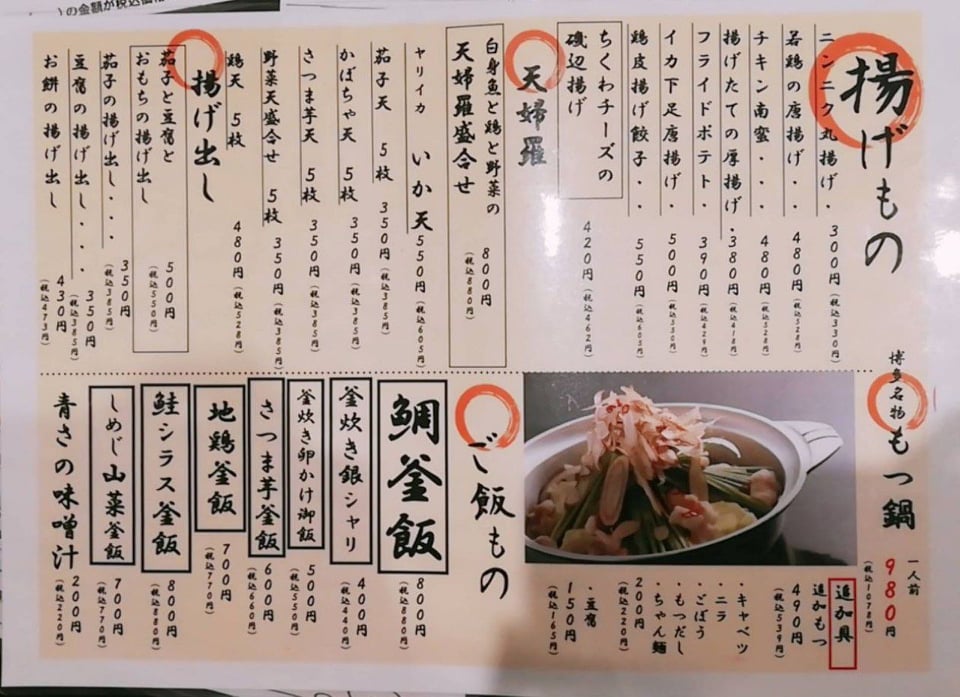 の金額が税込価格
揚げもの
ニンニク丸揚げ・ 300円(税込330円)
若鶏の唐揚げ・・ 480円(税込528円)
チキン南蛮・・・ 480円(税込528円)
揚げたての厚揚げ・ 380円(税込418円)
フライドポテト・ 390円(税込429円)
イカ下足唐揚げ・ 500円(税込550円)
鶏皮揚げ餃子・・ 550円(税込605円)
ちくわチーズの
磯辺揚げ 420円(税込462円)
天婦羅
白身魚と鶏と野菜の
天婦羅盛合せ 800円(税込880円)
ヤリイカ いか天 550円(税込605円)
茄子天 5枚 350円(税込385円)
かぼちゃ天 5枚 350円(税込385円)
さつま芋天 5枚 350円(税込385円)
野菜天盛合せ 5枚 350円(税込385円)
鶏天 5枚 480円(税込528円)
揚げ出し
茄子と豆腐と
おもちの揚げ出し 500円(税込550円)
茄子の揚げ出し・・・ 350円(税込385円)
豆腐の揚げ出し・・・ 350円(税込385円)
お餅の揚げ出し 430円(税込473円)
博多名物 もつ鍋
一人前 980円(税込1078円)
追加具
追加もつ 490円(税込539円)
・キャベツ
・ニラ
・ごぼう
・もつだし
・ちゃん麺
200円(税込220円)
・豆腐
150円(税込165円)
ご飯もの
鯛釜飯 800円(税込880円)
釜炊き銀シャリ 400円(税込440円)
釜炊き卵かけ御飯 500円(税込550円)
さつま芋釜飯 600円(税込660円)
地鶏釜飯 700円(税込770円)
鮭シラス釜飯 800円(税込880円)
しめじ山菜釜飯 700円(税込770円)
青さの味噌汁 200円(税込220円)